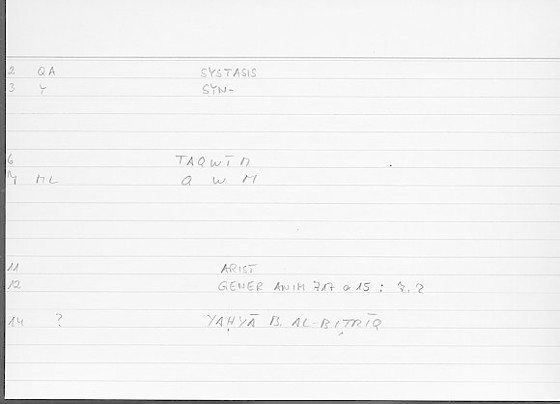 2 QA SYSTASIS
3 Y SYN-
6 TAQWĪM
ML Q W M
11 ARIST
12 GENER ANIM 717 a 15 : 7, 2
14 ? YAḤYĀ B. AL-BIṬRĪQ